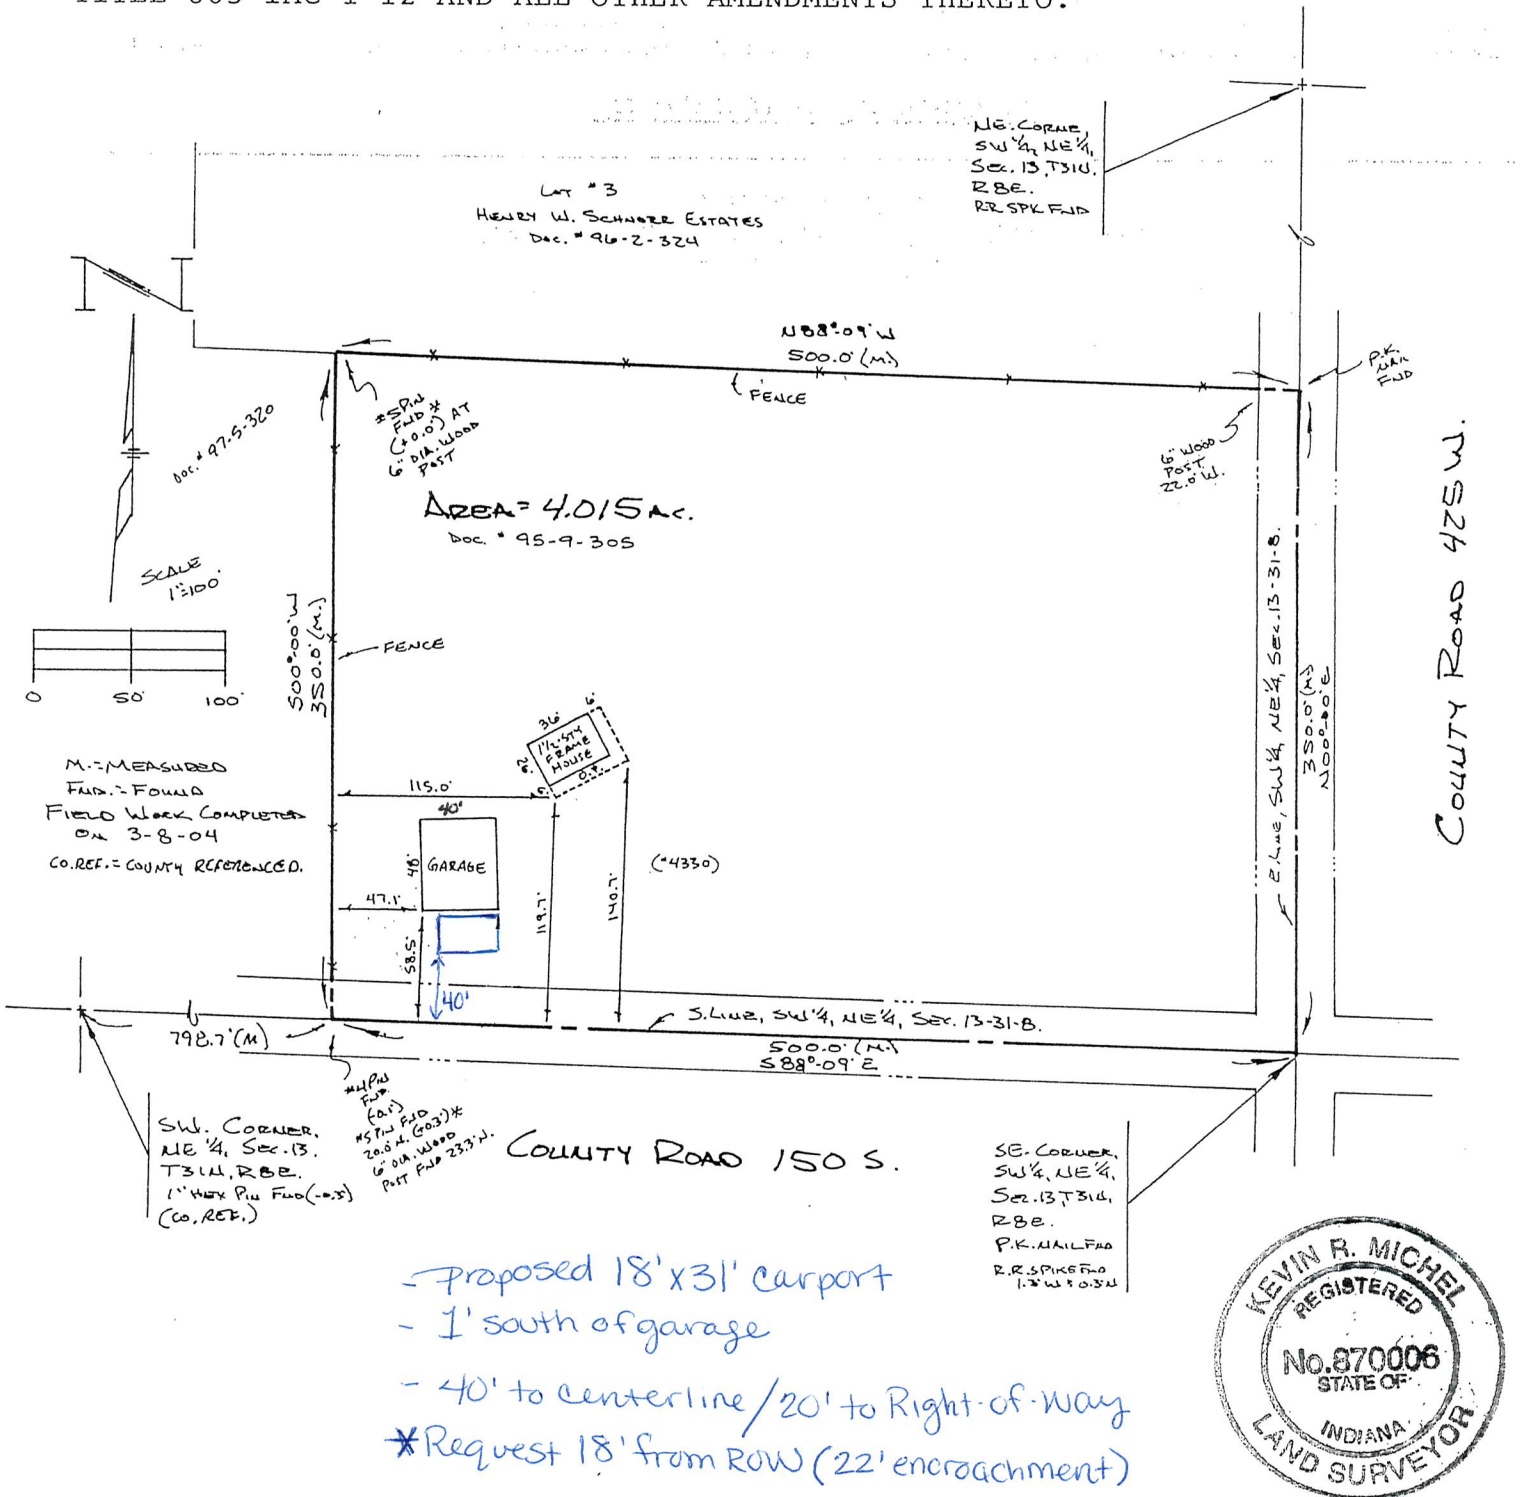 TITLE 865 IAC 1-12 AND ALL OTHER AMENDMENTS THERETO.
NE. CORNE,
SW 1/4, NE 1/4,
SEC. 13, T31N.
R8E.
RR SPK FND
LOT #3
HENRY W. SCHNORR ESTATES
DOC. # 96-2-324
N88°-09'W
500.0' (M.)
FENCE
P.K.
NAIL
FND
#5 PIN
FND *
(+0.0') AT
6" DIA. WOOD
POST
6" WOOD
POST
22.0' W.
DOC. # 97-5-320
AREA = 4.015 AC.
DOC. # 95-9-305
SCALE
1"=100'
0 50' 100'
S00°-00'W
350.0' (M.)
FENCE
E. LINE, SW 1/4, NE 1/4, SEC. 13-31-8.
350.0' (M)
N00°-00'E
COUNTY ROAD 425 W.
M. = MEASURED
FND. = FOUND
FIELD WORK COMPLETED
ON 3-8-04
CO. REF. = COUNTY REFERENCED.
36' 6'
1 1/2-STY
FRAME
HOUSE
26'
O.H.
6'
115.0'
40'
48'
GARAGE
47.1'
58.5'
119.7'
140.7'
(#4330)
40'
S. LINE, SW 1/4, NE 1/4, SEC. 13-31-8.
798.7' (M)
500.0' (M.)
S88°-09'E
#4 PIN
FND.
(-0.1')
#5 PIN FND
20.0' N. (+0.3') *
6" DIA. WOOD
POST FND 23.3' N.
SW. CORNER,
NE 1/4, SEC. 13.
T31N, R8E.
1" HEX PIN FND (-0.3')
(CO. REF.)
COUNTY ROAD 150 S.
SE. CORNER,
SW 1/4, NE 1/4,
SEC. 13, T31N,
R8E.
P.K. NAIL FND
R.R. SPIKE FND
1.3' W & 0.3' N
- proposed 18' x 31' carport
- 1' south of garage
- 40' to centerline / 20' to Right-of-way
* Request 18' from ROW (22' encroachment)
KEVIN R. MICHEL
REGISTERED
No. 870006
STATE OF
INDIANA
LAND SURVEYOR